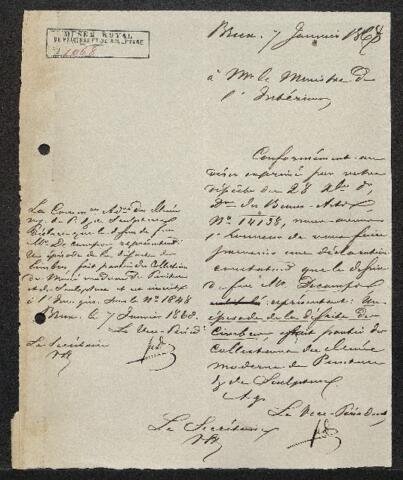 MUSÉE ROYAL
DE PEINTURE ET DE SCULPTURE
1068
Brux. 7 Janvier 1868
à Mr le Ministre de
l'Intérieur
Conformément au
désir exprimé par votre
dépêche du 28 Xbre dr
Don des Beaux-Arts
No 14138, nous avons
l'honneur de vous faire
parvenir une déclaration
constatant que le dessin
de feu Mr. Decamps
représentant Un
épisode de la défaite des
Cimbres, fait partie des
collections du Musée
moderne de Peinture
& de Sculpture
Le Vice-Président
Le Secrétaire
La Common Adve du Musée
roy. de P. & de Sculpture
Déclare que le dessin de feu
Mr. Decamps représentant
Un épisode de la défaite des
Cimbres, fait partie des Collections
du Musée moderne de Peinture
et de Sculpture et est inscrit
à l' sous le No 1848
Brux. le 7 Janvier 1868.
Le Vice-Présid
Le Secrétaire